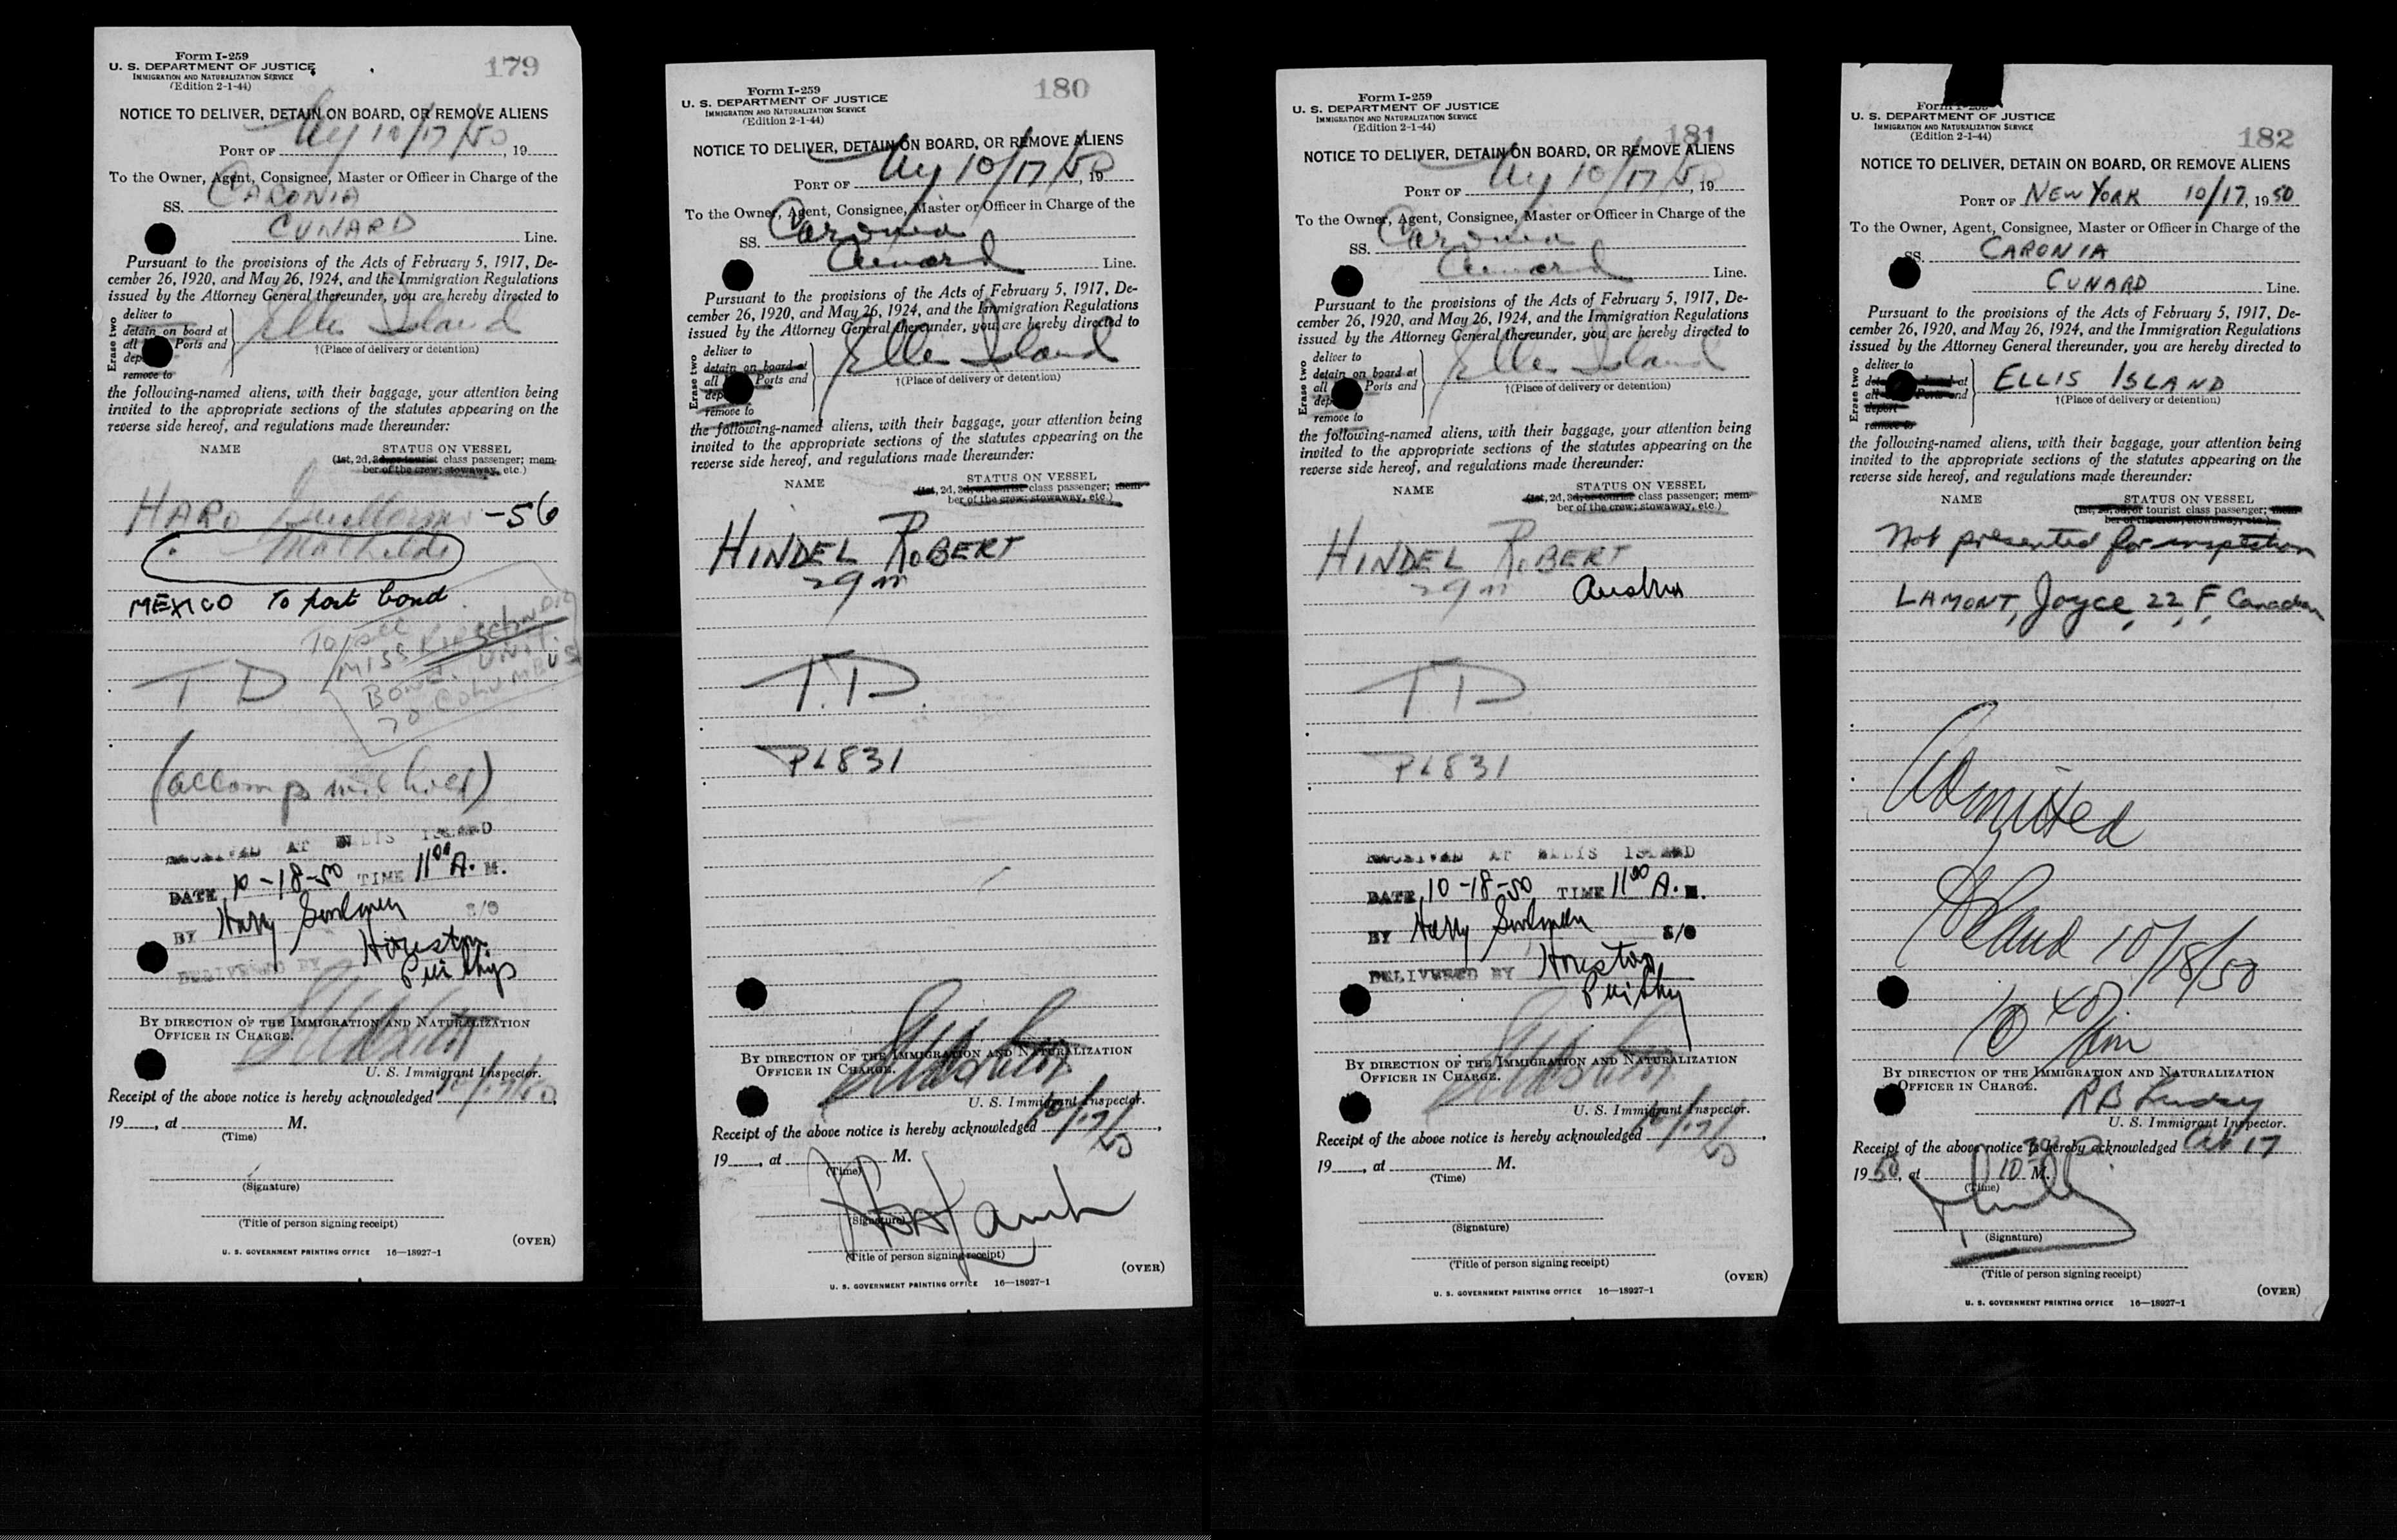 Form I-259
U. S. DEPARTMENT OF JUSTICE
IMMIGRATION AND NATURALIZATION SERVICE
(Edition 2-1-44)
179
NOTICE TO DELIVER, DETAIN ON BOARD, OR REMOVE ALIENS
PORT OF NY 10/17/50, 19
To the Owner, Agent, Consignee, Master or Officer in Charge of the
SS. CARONIA
CUNARD Line.
Pursuant to the provisions of the Acts of February 5, 1917, De-
cember 26, 1920, and May 26, 1924, and the Immigration Regulations
issued by the Attorney General thereunder, you are hereby directed to
Erase two
deliver to
detain on board at
all Ports and
dep
remove to
Ellis Island
†(Place of delivery or detention)
the following-named aliens, with their baggage, your attention being
invited to the appropriate sections of the statutes appearing on the
reverse side hereof, and regulations made thereunder:
NAME STATUS ON VESSEL
(1st, 2d, 3d, or tourist class passenger; mem-
ber of the crew; stowaway, etc.)
HARO Guillermo -56
Mathilde
MEXICO To post bond
To see
MISS
Bond UNIT.
70 COLUMBUS
T D
(accomp
RECEIVED AT ELLIS ISLAND
DATE 10-18-50 TIME 1100 A. M.
BY Harry S/O
Houston
DELIVERED BY
BY DIRECTION OF THE IMMIGRATION AND NATURALIZATION
OFFICER IN CHARGE.
U. S. Immigrant Inspector.
Receipt of the above notice is hereby acknowledged 10/17/50,
19, at M.
(Time)
(Signature)
(Title of person signing receipt)
(OVER)
U. S. GOVERNMENT PRINTING OFFICE 16—18927-1
Form I-259
U. S. DEPARTMENT OF JUSTICE
IMMIGRATION AND NATURALIZATION SERVICE
(Edition 2-1-44)
180
NOTICE TO DELIVER, DETAIN ON BOARD, OR REMOVE ALIENS
PORT OF NY 10/17/50, 19
To the Owner, Agent, Consignee, Master or Officer in Charge of the
SS. Caronia
Cunard Line.
Pursuant to the provisions of the Acts of February 5, 1917, De-
cember 26, 1920, and May 26, 1924, and the Immigration Regulations
issued by the Attorney General thereunder, you are hereby directed to
Erase two
deliver to
detain on board at
all Ports and
dep
remove to
Ellis Island
†(Place of delivery or detention)
the following-named aliens, with their baggage, your attention being
invited to the appropriate sections of the statutes appearing on the
reverse side hereof, and regulations made thereunder:
NAME STATUS ON VESSEL
(1st, 2d, 3d, or tourist class passenger; mem-
ber of the crew; stowaway, etc.)
HINDEL ROBERT
29 m
T.D.
PL831
BY DIRECTION OF THE IMMIGRATION AND NATURALIZATION
OFFICER IN CHARGE.
U. S. Immigrant Inspector.
Receipt of the above notice is hereby acknowledged 10/17/50,
19, at M.
(Time)
(Signature)
(Title of person signing receipt)
(OVER)
U. S. GOVERNMENT PRINTING OFFICE 16—18927-1
Form I-259
U. S. DEPARTMENT OF JUSTICE
IMMIGRATION AND NATURALIZATION SERVICE
(Edition 2-1-44)
181
NOTICE TO DELIVER, DETAIN ON BOARD, OR REMOVE ALIENS
PORT OF NY 10/17/50, 19
To the Owner, Agent, Consignee, Master or Officer in Charge of the
SS. Caronia
Cunard Line.
Pursuant to the provisions of the Acts of February 5, 1917, De-
cember 26, 1920, and May 26, 1924, and the Immigration Regulations
issued by the Attorney General thereunder, you are hereby directed to
Erase two
deliver to
detain on board at
all Ports and
dep
remove to
Ellis Island
†(Place of delivery or detention)
the following-named aliens, with their baggage, your attention being
invited to the appropriate sections of the statutes appearing on the
reverse side hereof, and regulations made thereunder:
NAME STATUS ON VESSEL
(1st, 2d, 3d, or tourist class passenger; mem-
ber of the crew; stowaway, etc.)
HINDEL ROBERT
29 m Austria
T.D
PL831
RECEIVED AT ELLIS ISLAND
DATE 10-18-50 TIME 1100 A. M.
BY Harry S/O
DELIVERED BY Houston
BY DIRECTION OF THE IMMIGRATION AND NATURALIZATION
OFFICER IN CHARGE.
U. S. Immigrant Inspector.
Receipt of the above notice is hereby acknowledged 10/17/50,
19, at M.
(Time)
(Signature)
(Title of person signing receipt)
(OVER)
U. S. GOVERNMENT PRINTING OFFICE 16—18927-1
Form I-259
U. S. DEPARTMENT OF JUSTICE
IMMIGRATION AND NATURALIZATION SERVICE
(Edition 2-1-44)
182
NOTICE TO DELIVER, DETAIN ON BOARD, OR REMOVE ALIENS
PORT OF NEW YORK 10/17, 1950
To the Owner, Agent, Consignee, Master or Officer in Charge of the
SS. CARONIA
CUNARD Line.
Pursuant to the provisions of the Acts of February 5, 1917, De-
cember 26, 1920, and May 26, 1924, and the Immigration Regulations
issued by the Attorney General thereunder, you are hereby directed to
Erase two
deliver to
detain on board at
all Ports and
deport
remove to
ELLIS ISLAND
†(Place of delivery or detention)
the following-named aliens, with their baggage, your attention being
invited to the appropriate sections of the statutes appearing on the
reverse side hereof, and regulations made thereunder:
NAME STATUS ON VESSEL
(1st, 2d, 3d, or tourist class passenger; mem-
ber of the crew; stowaway, etc.)
Not presented for inspection
LAMONT, Joyce, 22, F, Canadian
Admitted
10/18/50
10 40 am
BY DIRECTION OF THE IMMIGRATION AND NATURALIZATION
OFFICER IN CHARGE.
U. S. Immigrant Inspector.
Receipt of the above notice is hereby acknowledged Oct 17
1950, at 10 M.
(Time)
(Signature)
(Title of person signing receipt)
(OVER)
U. S. GOVERNMENT PRINTING OFFICE 16—18927-1